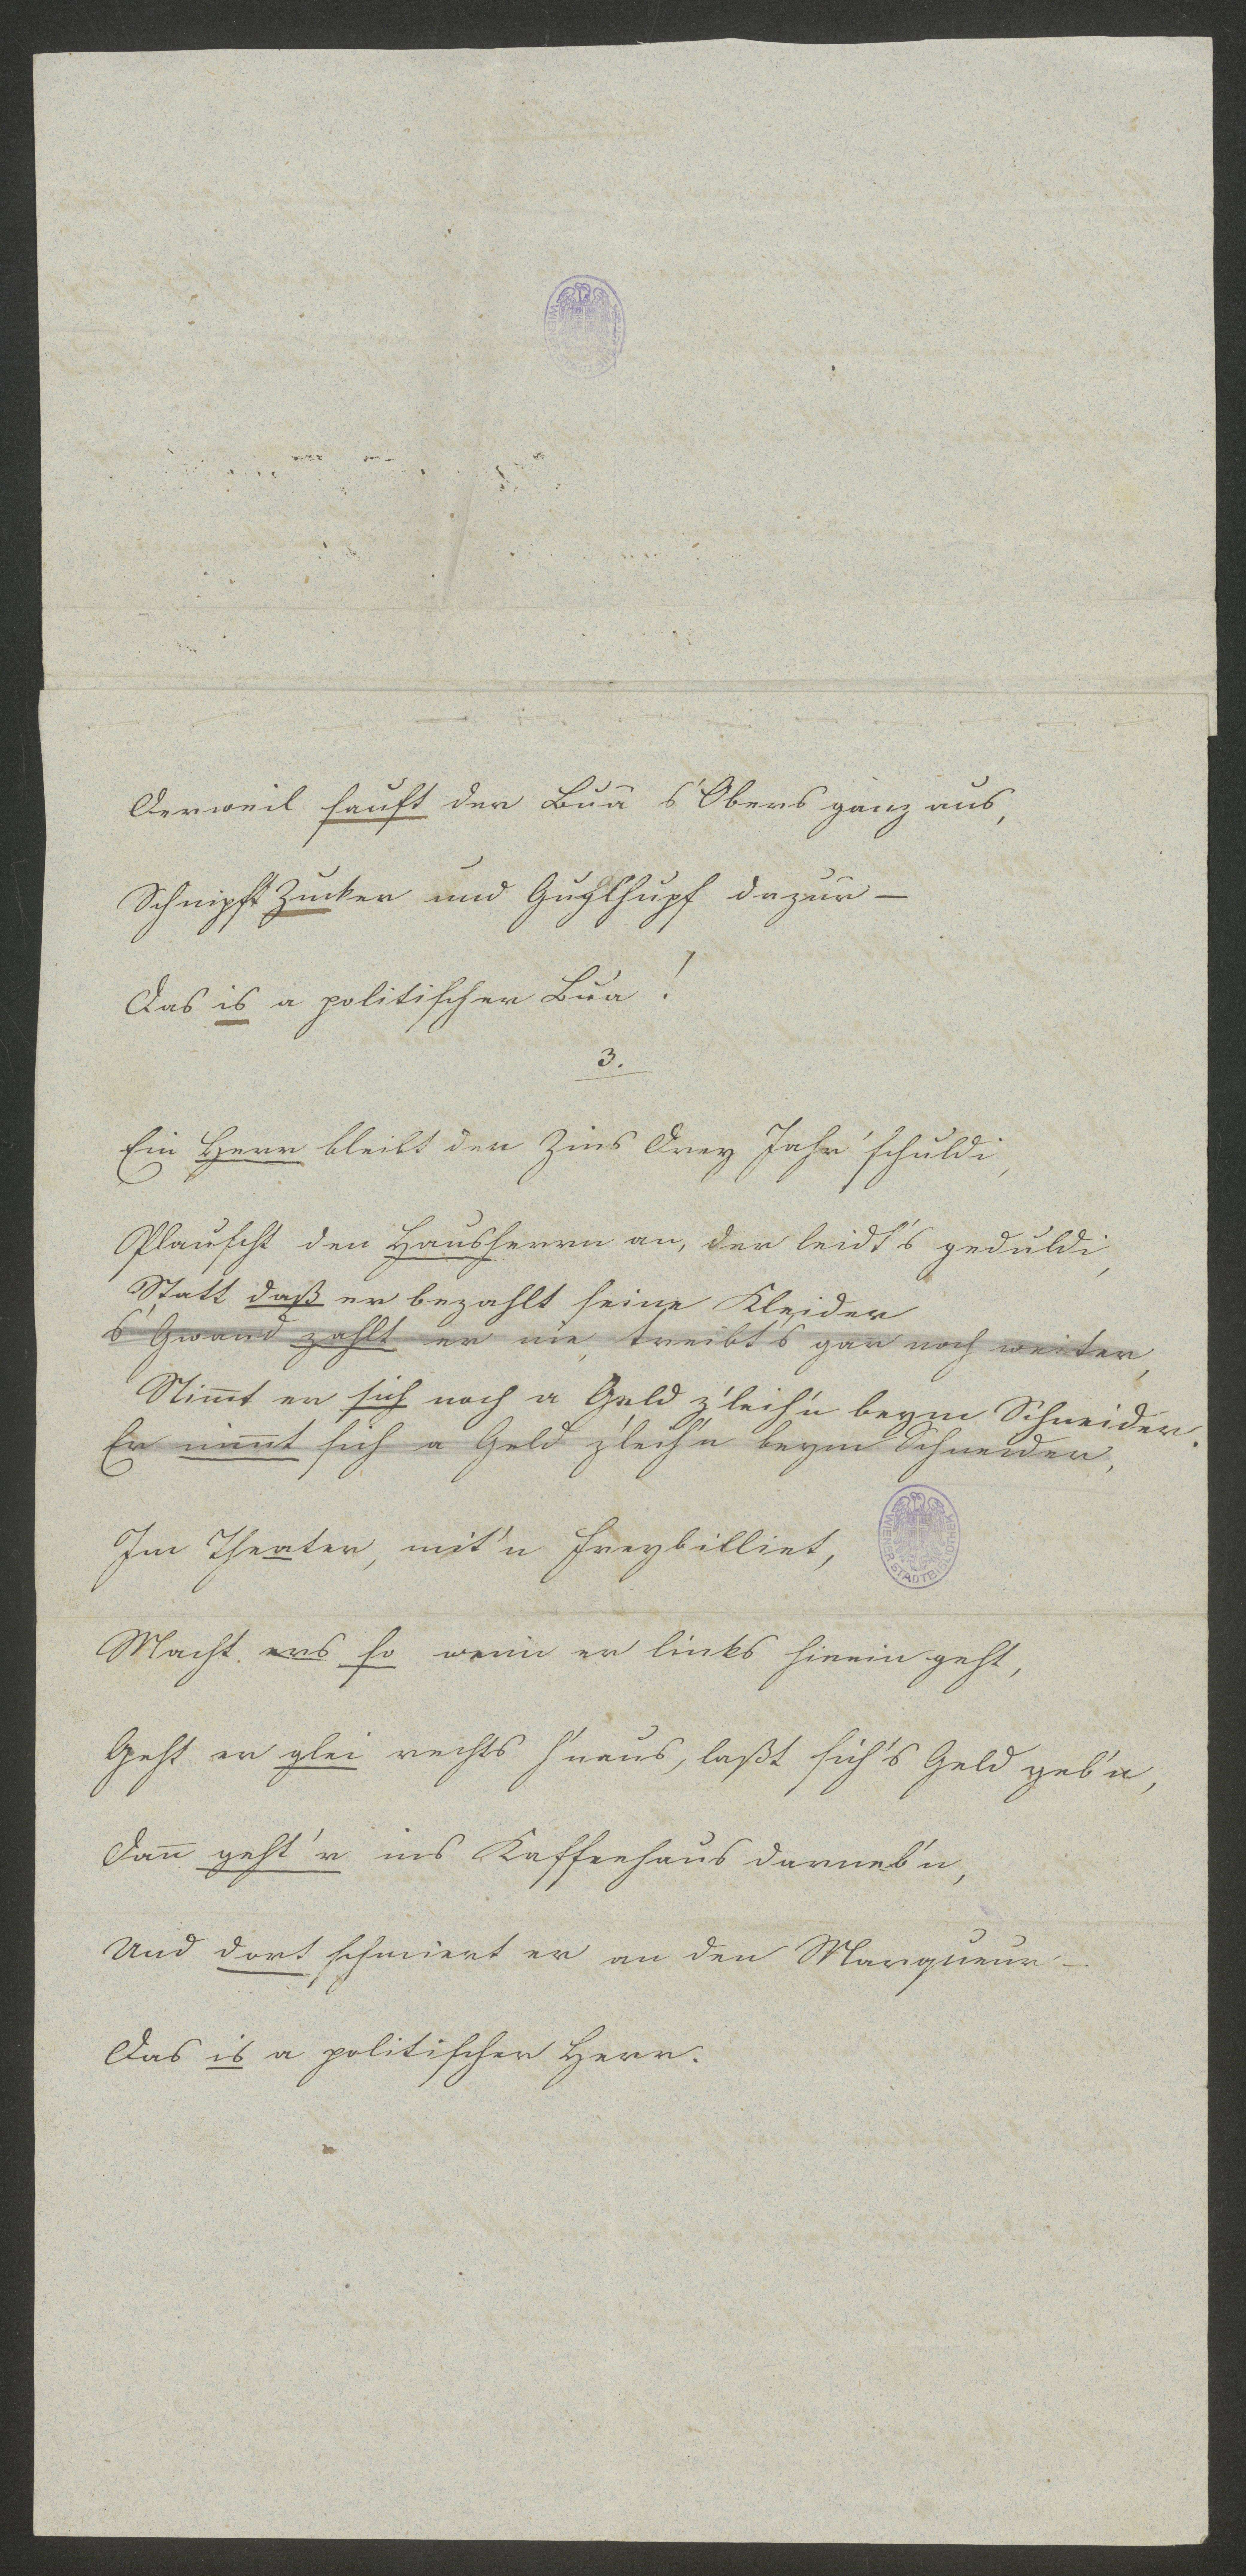 Derweil sauft der Bua s'Obers ganz aus,
Schnipft Zucker und Guglhupf dazua –
Das is a politischer Bua!
3.
Ein Herr bleibt den Zins drey Jahr' schuldi,
Plauscht den Hausherrn an, der leidt's geduldi,
Statt daß er bezahlt seine Kleider
s'Gwand zahlt er nie, treibt's gar noch weiter,
Nim̅t er sich noch a Geld z'leih'n beym Schneider.
Er nim̅t sich a Geld z'leih'n beym Schneider,
Im Theater, mit'n Freybilliet,
Macht ers so wenn er links hinein geht,
Geht er glei rechts h'naus, laßt sich's Geld geb'n,
Dan̅ geht'r ins Kaffeehaus darneb'n,
Und dort schmiert er an den Marqueur –
Das is a politischer Herr.